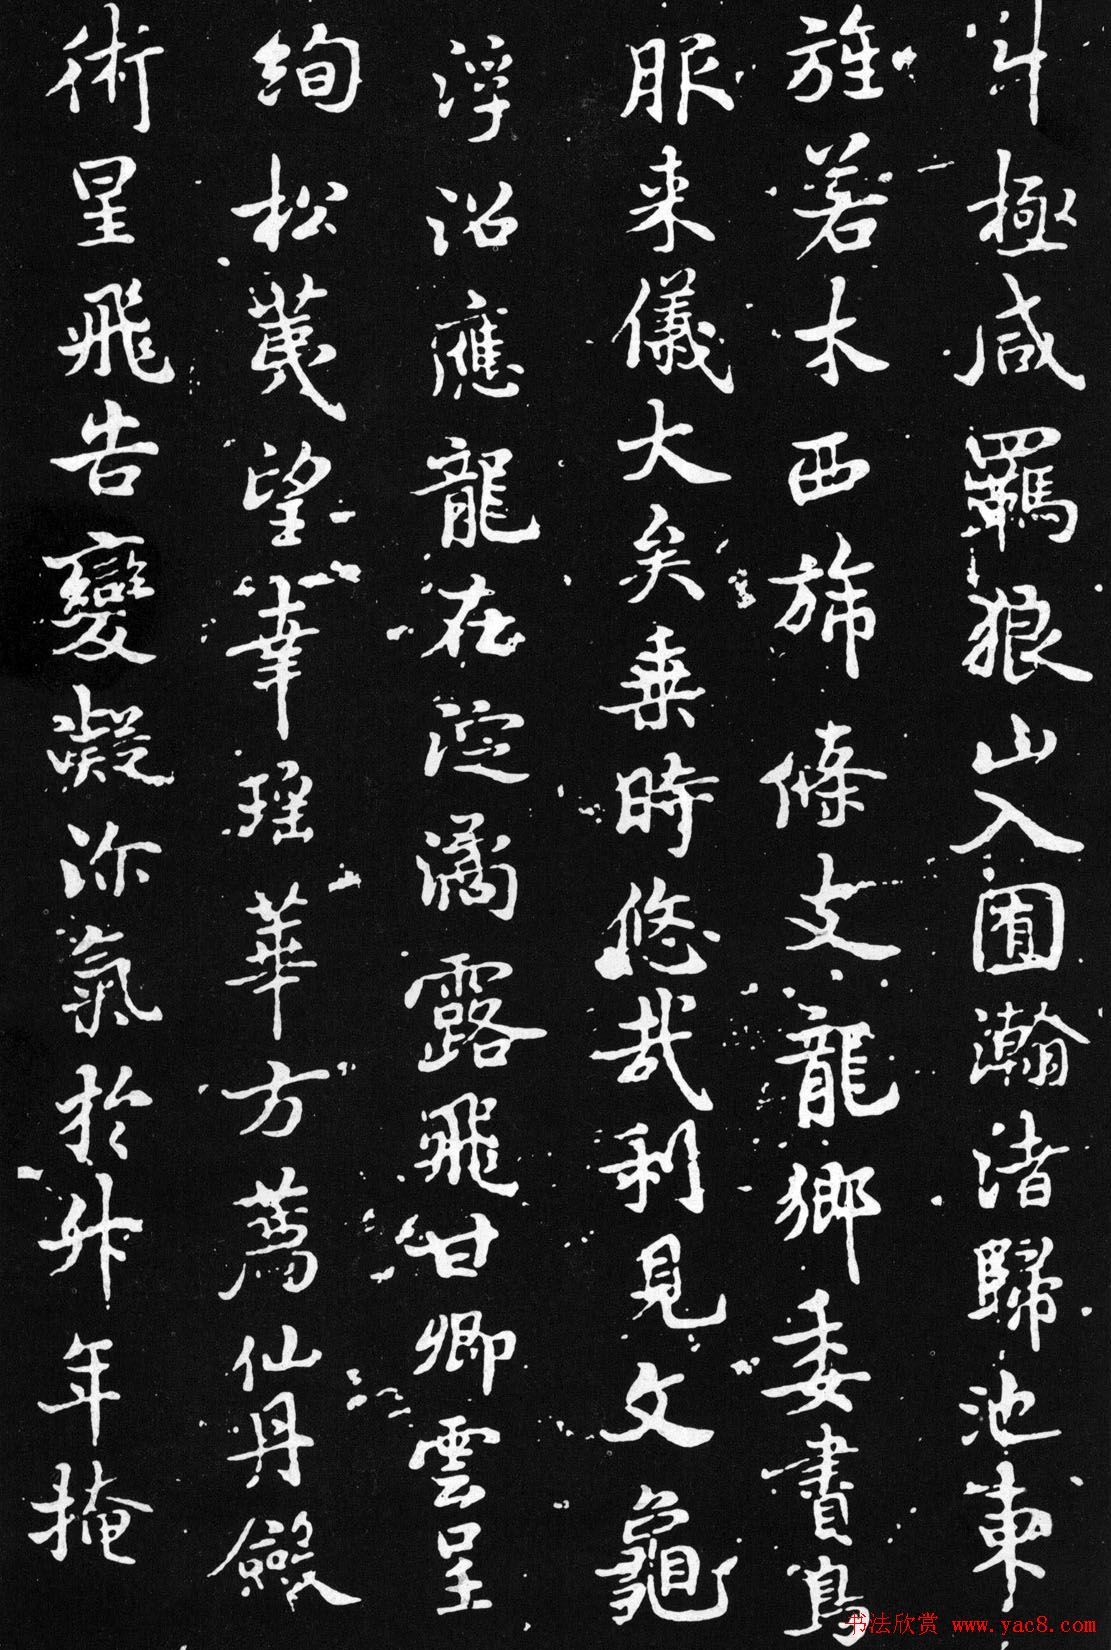 斗極咸羈狼山入囿瀚渚歸池東
旌若木西旆條支龍鄉委書鳥
服来儀大矣乗時悠哉利見文龜
浮沼應龍在淀潏露飛甘卿雲呈
絢松荑望幸瑤華方薦仙丹斂
術星飛告變凝沴氣於升年掩
书法欣赏 www.yac8.com